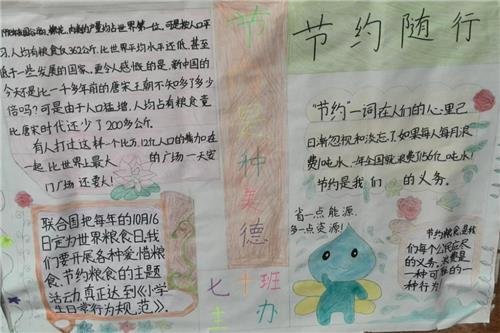 我国谷物、棉花、肉类的产量均占世界第一位，可是按人口平
习，人均有粮食仅362公斤，比世界平均水平还低，甚至
低于一些发展的国家。更令人感慨的是，新中国的
今天不是比一千多年前的唐宋王朝不知多了多少
倍吗？可是由于人口猛增，人均占有粮食竟
比唐宋时代还少了200多公斤。
有人打过这样一个比方，12亿人口的
一起 比世界上最大 的广场一天安
门广场 还要大！
联合国把每年的10月16
日定为世界粮食日，我
们要开展各种爱惜粮
食、节约粮食的主题
活动，真正达到《小学
生日常行为规范》。
节约是种美德
七十班
主办
节约随行
“节约”一词在人们的心里已
日渐忽视和淡忘了。如果每人每月浪
费1吨水，一年全国就浪费156亿吨水！
节约是我们 的义务。
省一点能源，
多一点资源！
节约粮食是我
们每个公民应尽
的义务，浪费是
一种可耻的一
种行为